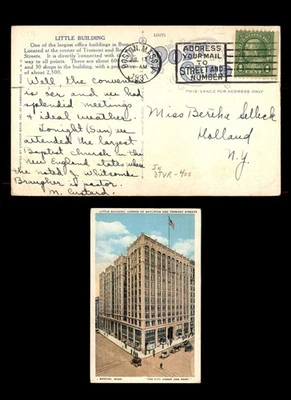 LITTLE BUILDING
One of the largest office buildings in Boston.
Located at the corner of Tremont and Boylston
Streets. It is directly connected with
way to all points. There are about
and 30 shops in the building, with a
of about 2,500.
BOSTON, MASS.
1931
ADDRESS
YOUR MAIL
TO
STREET AND
NUMBER
THIS SPACE FOR ADDRESS ONLY
Well, the convention
is over and we had
splendid meetings
& ideal weather.
Tonight (Sun) we
attended the largest
Baptist church in the
New England states where
the noted Whitcombe
Brougher is pastor.
M. Custard.
Miss Bertha Selleck
Holland
N.Y.
LITTLE BUILDING, CORNER OF BOYLSTON AND TREMONT STREETS
BOSTON, MASS.